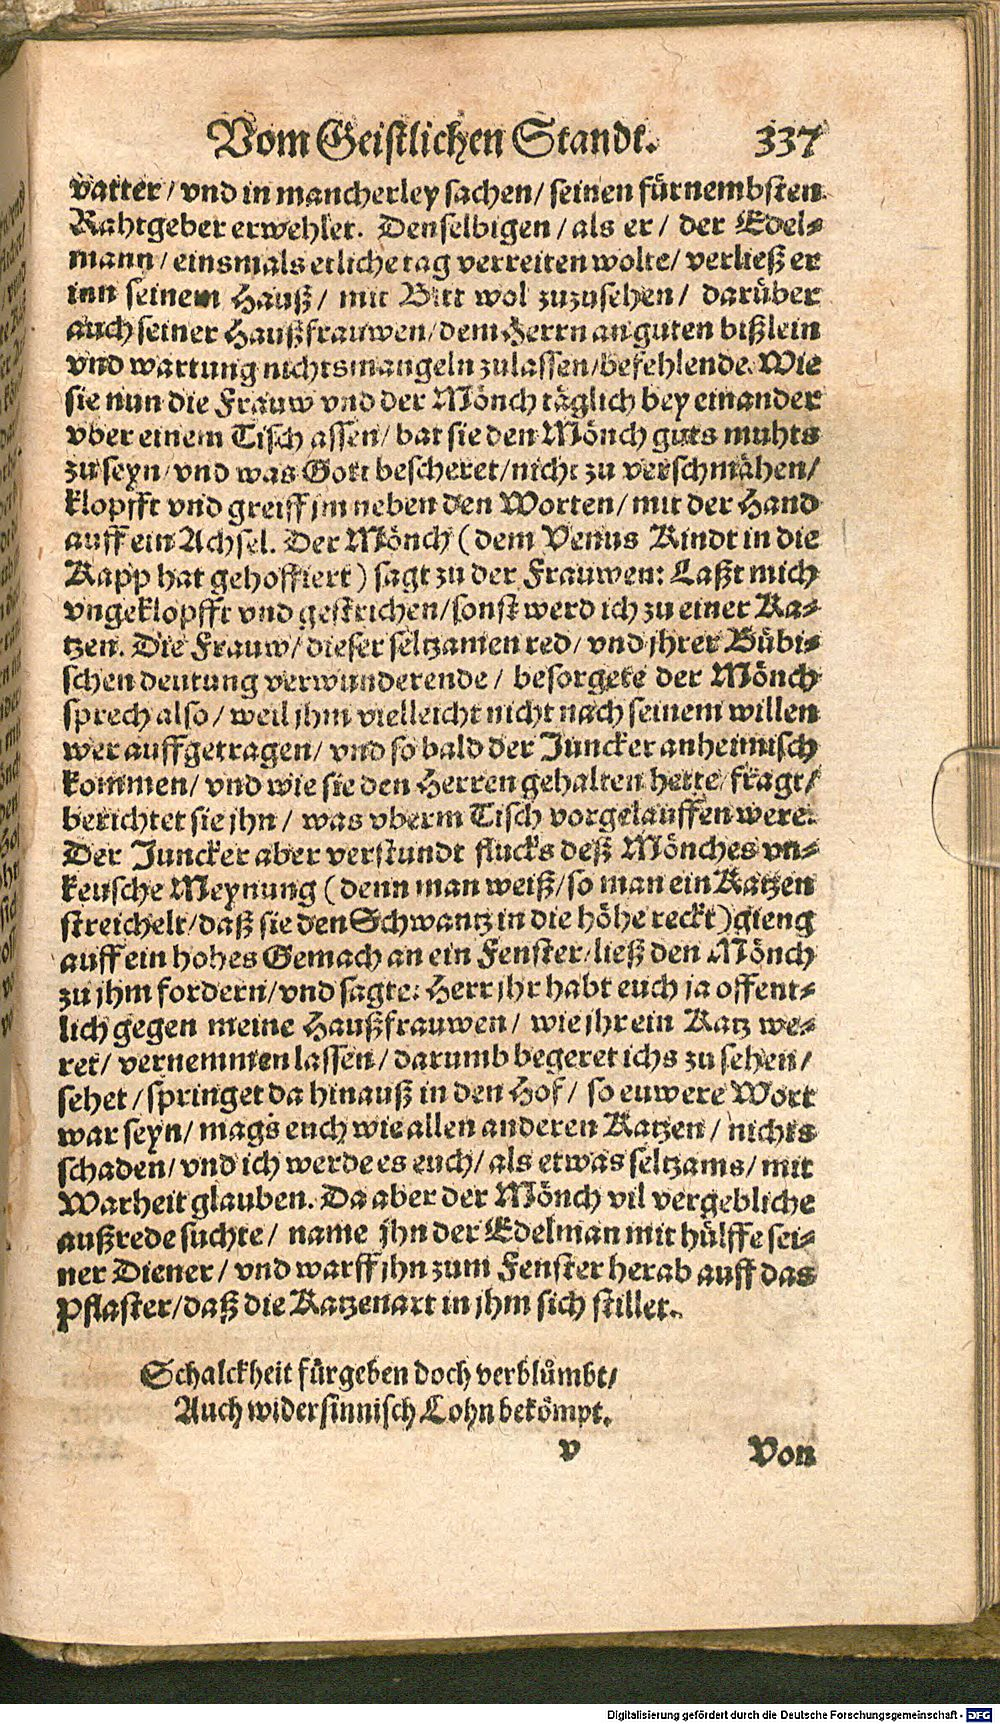 Vom Geistlichen Standt. 337
vatter / vnd in mancherley sachen / seinen fürnembsten
Rahtgeber erwehlet. Denselbigen / als er / der Edel-
mann / einsmals etliche tag verreiten wolte / verließ er
inn seinem Hauß / mit Bitt wol zuzusehen / darüber
auch seiner Haußfrauwen / dem Herrn an guten bißlein
vnd wartung nichts mangeln zulassen / befehlende. Wie
sie nun die Frauw vnd der Mönch täglich bey einander
vber einem Tisch assen / bat sie den Mönch guts muhts
zu seyn / vnd was Gott bescheret / nicht zu verschmähen /
klopfft vnd greiff jm neben den Worten / mit der Hand
auff ein Achsel. Der Mönch ( dem Venus Kindt in die
Kapp hat gehoffiert ) sagt zu der Frauwen: Laßt mich
vngeklopfft vnd gestrichen / sonst werd ich zu einer Ka-
tzen. Die Frauw / dieser seltzamen red / vnd jhrer Bübi-
schen deutung verwunderende / besorgete der Mönch
sprech also / weil jhm vielleicht nicht nach seinem willen
wer auffgetragen / vnd so bald der Juncker anheimisch
kommen / vnd wie sie den Herren gehalten hette / fragt /
berichtet sie jhn / was vberm Tisch vorgelauffen were.
Der Juncker aber verstundt flucks deß Mönches vn-
keusche Meynung ( denn man weiß / so man ein Katzen
streichelt / daß sie den Schwantz in die höhe reckt ) gieng
auff ein hohes Gemach an ein Fenster / ließ den Mönch
zu jhm fordern / vnd sagte: Herr jhr habt euch ja offent-
lich gegen meine Haußfrauwen / wie jhr ein Katz we-
ret / vernemmen lassen / darumb begeret ichs zu sehen /
sehet / springet da hinauß in den Hof / so euwere Wort
war seyn / mags euch wie allen anderen Katzen / nichts
schaden / vnd ich werde es euch / als etwas seltzams / mit
Warheit glauben. Da aber der Mönch vil vergebliche
außrede suchte / name jhn der Edelman mit hülffe sei-
ner Diener / vnd warff jhn zum Fenster herab auff das
Pflaster / daß die Katzenart in jhm sich stillet.
Schalckheit fürgeben doch verblůmbt /
Auch widersinnisch Lohn bekömpt.
v Von
Digitalisierung gefördert durch die Deutsche Forschungsgemeinschaft - DFG